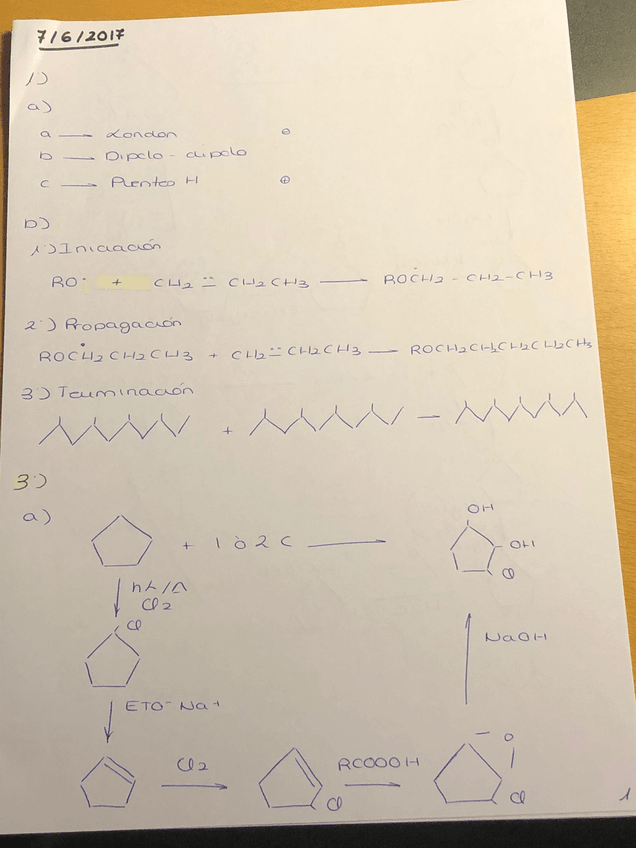 7/6/2017
1)
a)
a — London ⊖
b — Dipolo - dipolo
c — Puentes H ⊕
b)
1:) Iniciación
RO· + CH2 = CH2CH3 — ROCH2 - CH2 - CH3
2:) Propagación
ROCH2CH2CH3 + CH2 = CH2CH3 — ROCH2CH2CH2CH2CH3
3:) Terminación
+ —
3:)
a)
+ 1 ò 2 C — OH OH Cl
hλ/Δ
Cl2
Cl
NaOH
ETO⁻ Na+
Cl2 RCOOOH
Cl O Cl
1